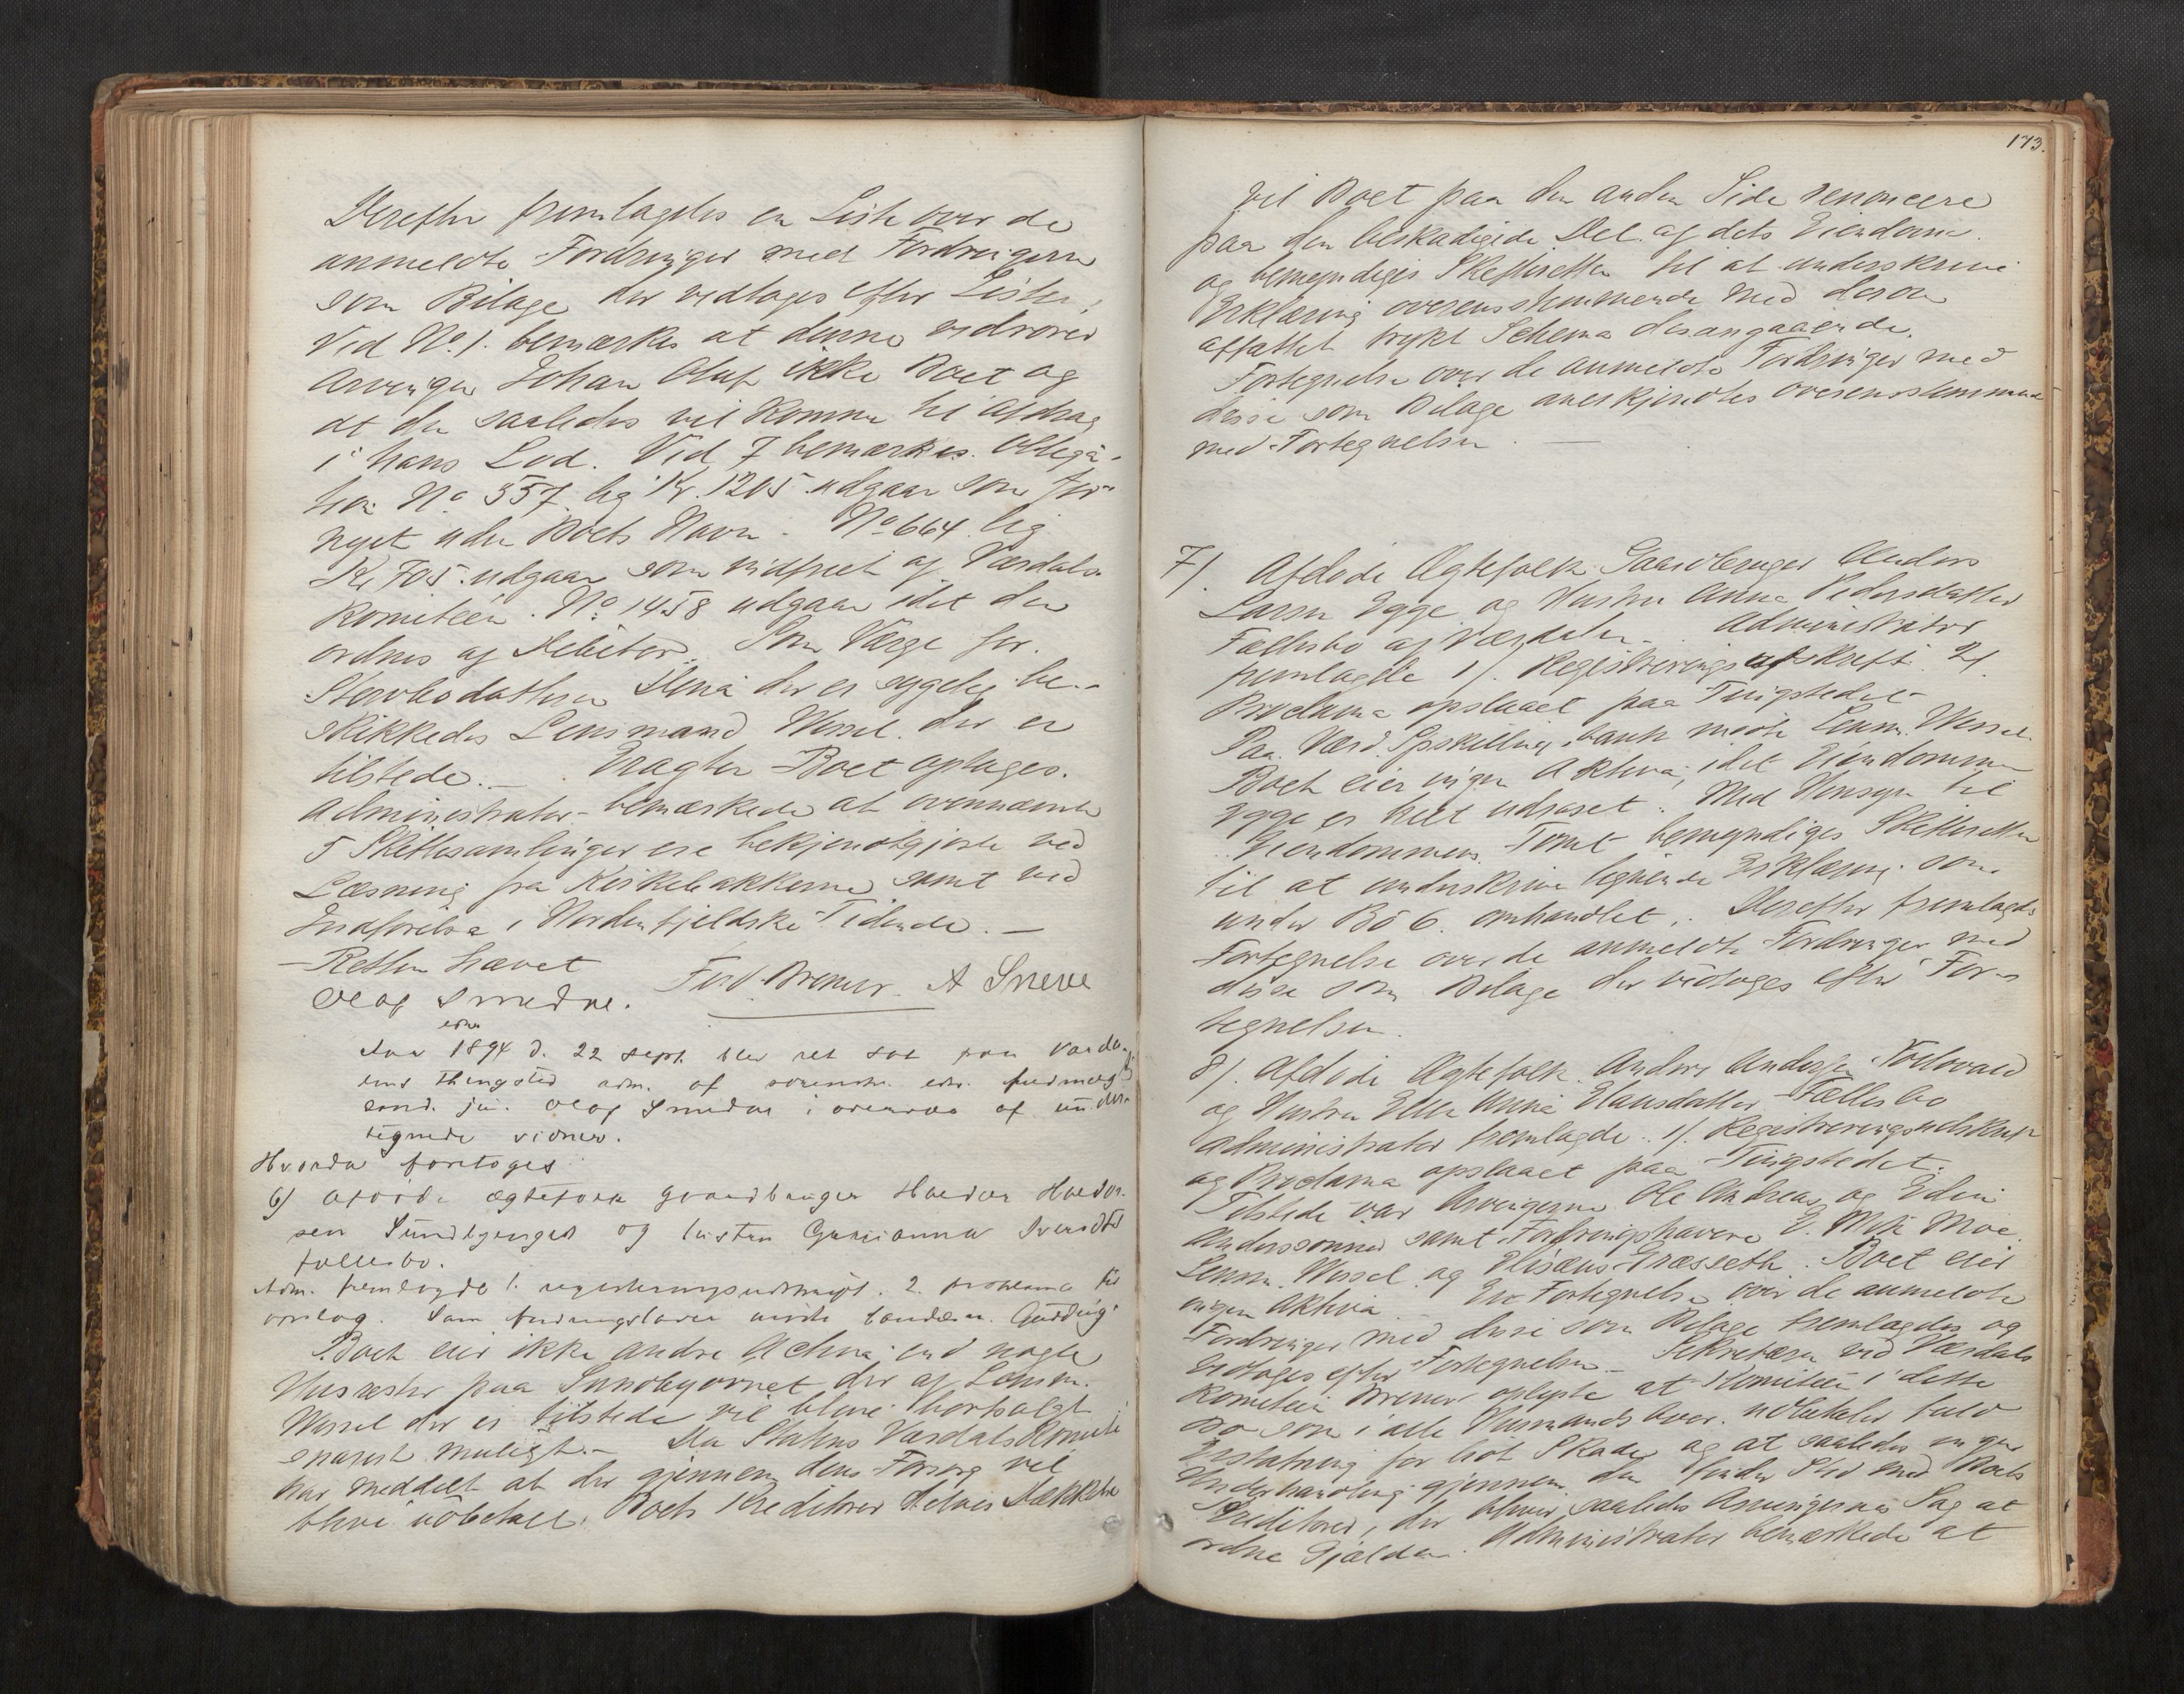 Derefter fremlagdes en Liste over de
anmeldte Fordringer med Fordringerne
som Bilage der vedtoges efter Listen,
Ved No. 1. bemærkes at denne vedrører
Arvingen Johan Oluf ikke Boet og
at den saaledes vil komme til Afdrag
i hans Lod. Ved 7 bemærkes Obliga-
tion No 557 lig Kr. 1205 udgaar som for-
nyet uden Boets Navn. No 664 lig
Kr 705 udgaar som indfriet af Værdals
komiteen. No 1458 udgaar idet den
ordnes af Debitor. Som Værge for
Stervbodatteren Elena der er sygelig be-
skikkedes Lensmand Wessel der er
tilstede. — Eragter Boet optages.
Administrator bemærkede at ovennævnte
5 Skiftesamlinger ere bekjendtgjorte ved
Læsning fra Kirkebakkerne samt ved
Indførelse i Nordenfjeldske Tidende. —
— Retten hævet
Olaf Smedne. Ferd. Bremer. A Sneve
Aar 1894 d. 22 sept. blev ret sat paa Værda-
lens Thingsted adm. af sorensk. edsv. fuldmægt.
cand. jur. Olaf Smedne i overvær af under-
tegnede vidner.
Hvorda foretoges
6) afdøde ægtefolk gaardbruger Haldor Haldor-
sen Sundbyengen og hustru Gurianna Sivertsdtr
fællesbo.
Adm. fremlagde 1. registreringsudskrift. 2. proklama til
opslag. Som fordringshaver mødte Gudding.
Boet eier ikke andre Activa end nogle
Husrester paa Sundbyovnet der af Lensm.
Wessel der er tilstede vil blive bortsolgt
snarest muligt. — Da Statens Værdalskomité
har meddelt at der gjennem dens Forsorg vil
blive udbetalt Boets Kreditorer deres Dækkelse
173.
vil Boet paa den anden Side renoncere
paa den beskadigede Del af dets Eiendom
og bemyndiges Skifteretten til at underskrive
Erklæring overensstemmende med derom
affattet trykt Schema desangaaende.
Fortegnelse over de anmeldte Fordringer med
disse som Bilage anerkjendtes overensstemmende
med Fortegnelsen. —
7). Afdøde Ægtefolk Gaardbruger Anders
Larsen Egge og Hustru Anna Pedersdatter
Fællesbo af Værdalen. Administrator
fremlagde 1). Registreringsafskrift 2).
Proclama opslaaet paa Tingstedet
Paa Værd. Spskillingsbank mødte Lensm. Wessel.
Boet eier ingen Aktiva, idet Eiendommen
Egge er helt udraset. Med Hensyn til
Eiendommens Tomt bemyndiges Skifteretten
til at underskrive lignende Erklæring som
under Bo 6. omhandlet. Derefter fremlagdes
Fortegnelse over de anmeldte Fordringer med
disse som Bilage der vedtoges efter For-
tegnelsen.
8). Afdøde Ægtefolk Anders Andersen Follovald
og Hustru Ellen Anna Elausdatter Fællesbo
Administrator fremlagde 1). Registreringsudskrift
og Proclama opslaaet paa Tingstedet.
Tilstede var Arvingerne Ole Andreas og Edin
Anderssønner samt Fordringshavere E. Moe.
Lensm. Wessel og Elisæus Græsseth. Boet eier
ingen Aktiva En Fortegnelse over de anmeldte
Fordringer med disse som Bilage fremlagdes og
vedtoges efter Fortegnelsen — Sekretæren ved Værdals
komiteen Bremer oplyste at Komiteen i dette
Bo som i alle Husmands boer. udbetaler fuld
Erstatning for lidt Skade og at saaledes ingen
Underhandling gjennem den finder Sted med Boets
Kreditorer, der bliver saaledes Arvingernes Sag at
ordne Gjælden. Administrator bemærkede at